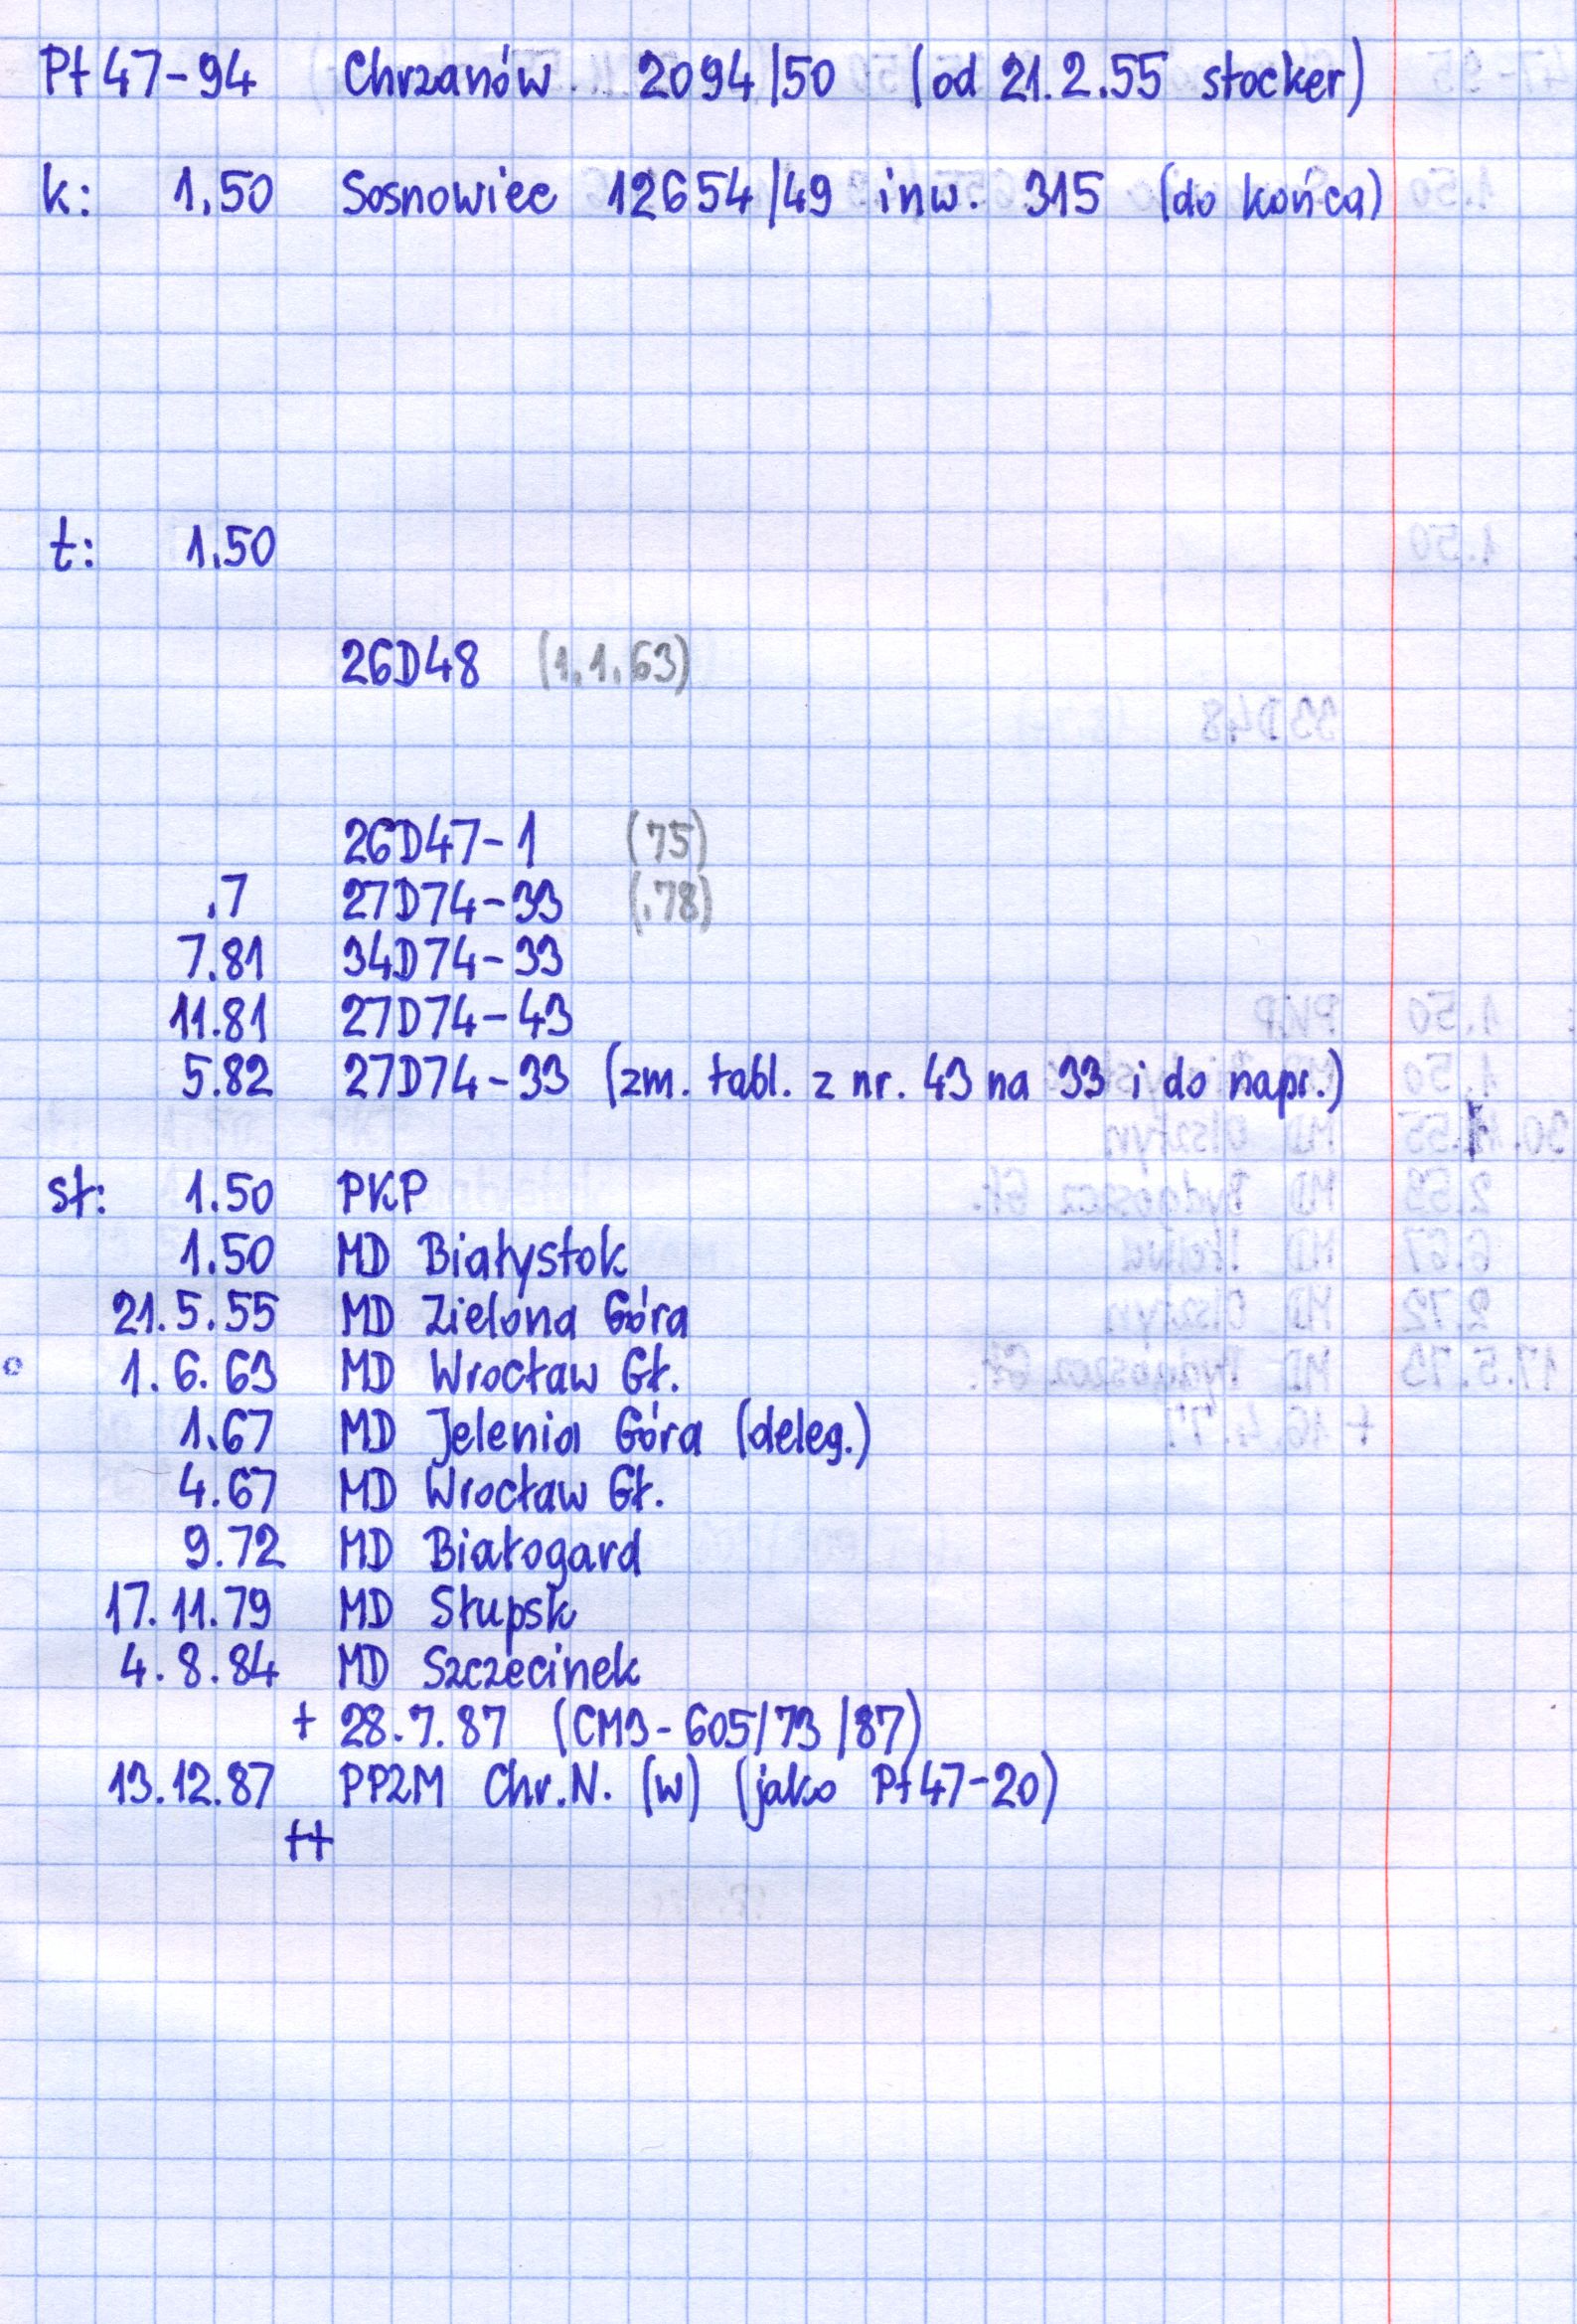 Pt47-94 Chrzanów 2094/50 (od 21.2.55 stocker)
k: 1.50 Sosnowiec 12654/49 inw. 315 (do końca)
t: 1.50
26D48 (1.1.63)
26D47-1 (75)
.7 27D74-33 (.78)
7.81 34D74-33
11.81 27D74-43
5.82 27D74-33 (zm. tabl. z nr. 43 na 33 i do napr.)
st: 1.50 PKP
1.50 MD Białystok
21.5.55 MD Zielona Góra
1.6.63 MD Wrocław Gł.
1.67 MD Jelenia Góra (deleg.)
4.67 MD Wrocław Gł.
9.72 MD Białogard
17.11.79 MD Słupsk
4.8.84 MD Szczecinek
+ 28.7.87 (CM3-605/73/87)
13.12.87 PPZM Chr.N. (w) (jako Pt47-20)
++